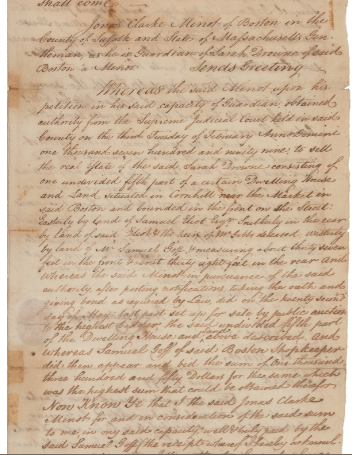 shall come
Jonas Clarke Minot of Boston in the
County of Suffolk and State of Massachusetts Gen-
tleman, as he is Guardian of Sarah Drowne of said
Boston a Minor Sends Greeting
Whereas the said Minot upon his
petition in his said capacity of Guardian obtained
authority from the Supreme Judicial Court held in said
County on the third Tuesday of February Anno Domini
one thousand seven hundred and ninety nine, to sell
the real Estate of the said Sarah Drowne consisting of
one undivided fifth part of a certain Dwelling House
and Land situated in Cornhill near the Market in
said Boston and bounded in the front on the Street
by land of Samuel Eliot Esqr Southerly in the rear
by land of said Eliot & the heirs of deceased, westerly
by land of Mr Samuel Goff, & measuring about thirty seven
feet in the front & about thirty eight feet in the rear And
Whereas the said Minot in pursuance of the said
authority after posting notifications, taking the oath and
giving bond as required by Law, did on the twenty second
day of May last past set up for sale by public auction
to the highest bidder, the said undivided fifth part
of the Dwelling House and above described And
whereas Samuel Goff of said Boston Shopkeeper
did then appear and bid the sum of One thousand
three hundred and fifty Dollars for the same which
was the highest sum that could be obtained therefor
Now Know Ye that I the said Jonas Clarke
Minot for and in consideration of the said sum
to me in my said capacity well & truly paid by the
said Samuel Goff (the receipt whereof I hereby acknowl